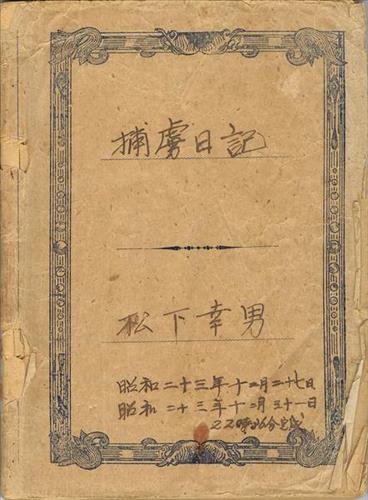 捕虜日記
松下幸男
昭和二十三年十二月二十七日
昭和二十三年十二月三十一日
22時26分完成